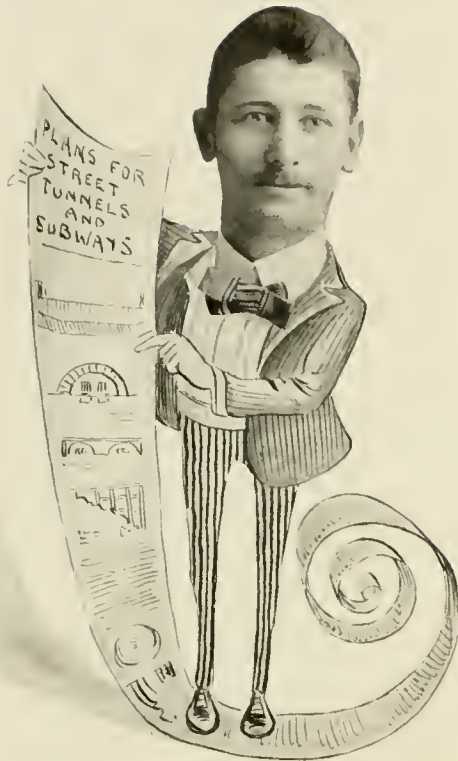 PLANS FOR
STREET
TUNNELS
AND
SUBWAYS